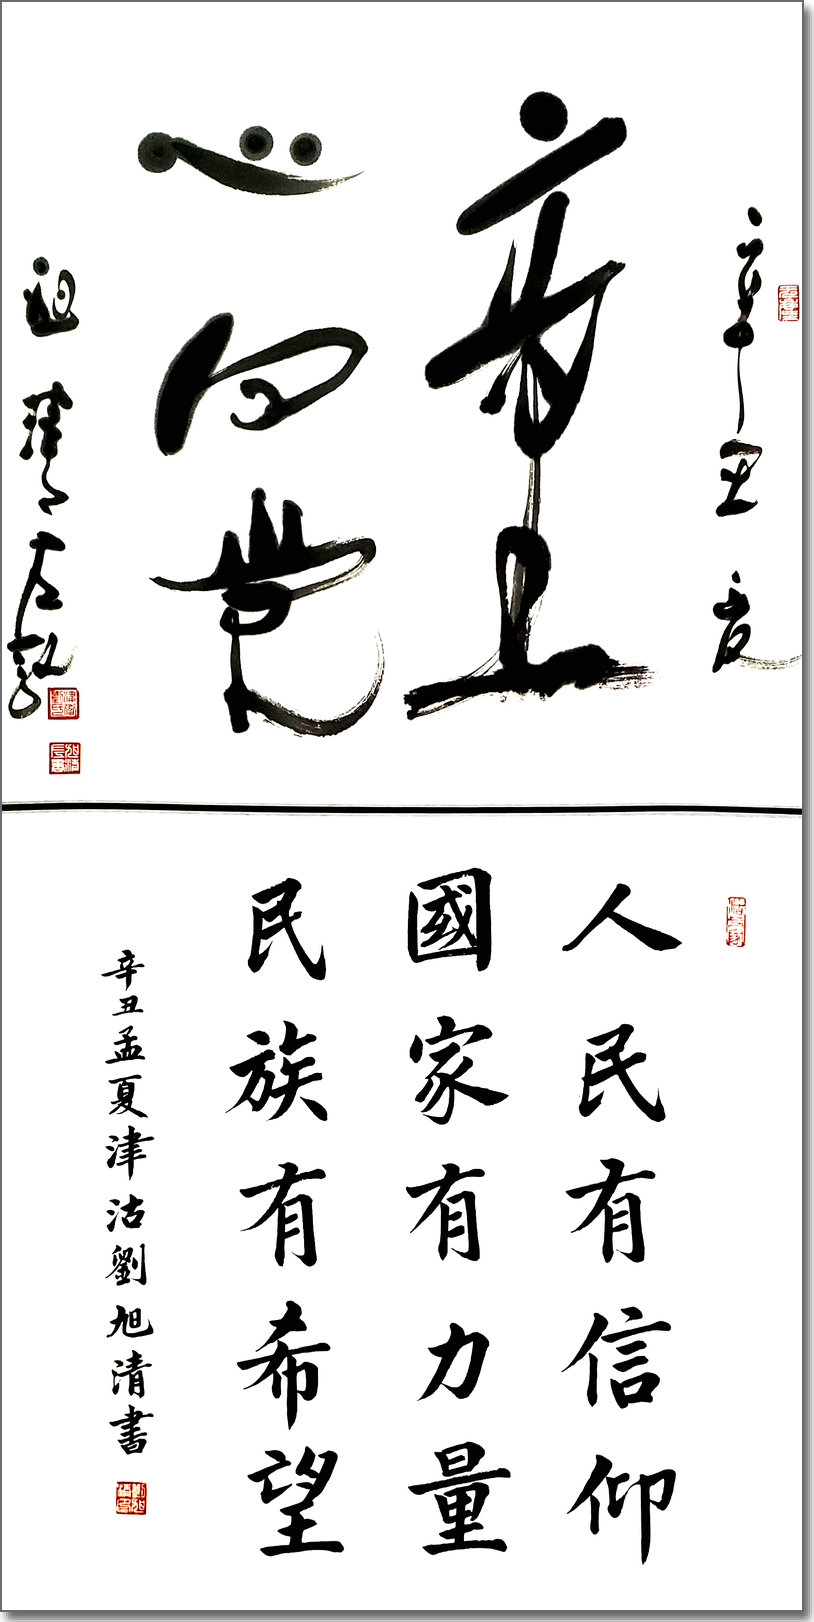 辛丑夏
心向党
旭清左
人民有信仰
國家有力量
民族有希望
辛丑孟夏津沽劉旭清書